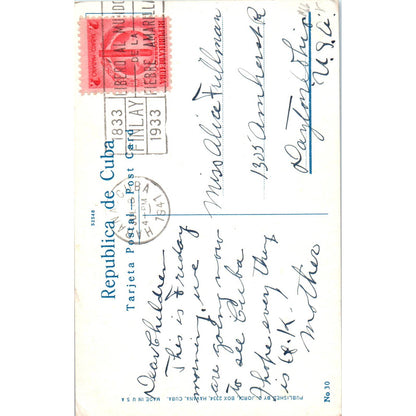 1833 1933
LIBERTO AL MUNDO
FINLAY DE LA
FIEBRE AMARILLA
HABANA CUBA
4-PM
1941
Republica de Cuba
Tarjeta Postal—Post Card
52548
Dear Children
This is Friday
morning, we
are going now
to see Cuba
I hope every thing
is O.K!
Mother
Miss Alice Fullman
1305 Amherst R
Dayton Ohio
U.S.A.
PUBLISHED BY JORDI, BOX 2334, HAVANA, CUBA. MADE IN U S A
No 30